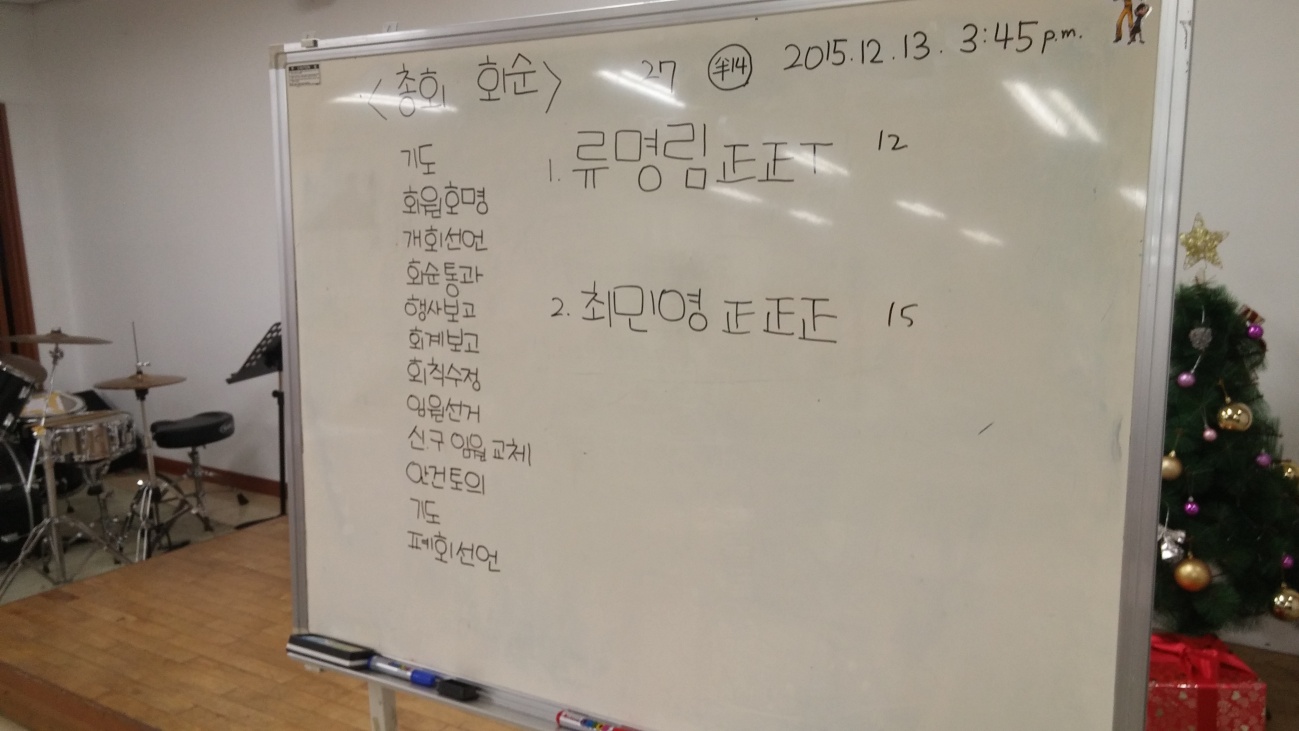 <총회 회순> 27 半14 2015.12.13. 3:45 p.m.
기도
회원호명
개회선언
회순통과
행사보고
회계보고
회칙수정
임원선거
신구 임원 교체
안건토의
기도
폐회선언
1. 류명림 正正丅 12
2. 최민영 正正正 15